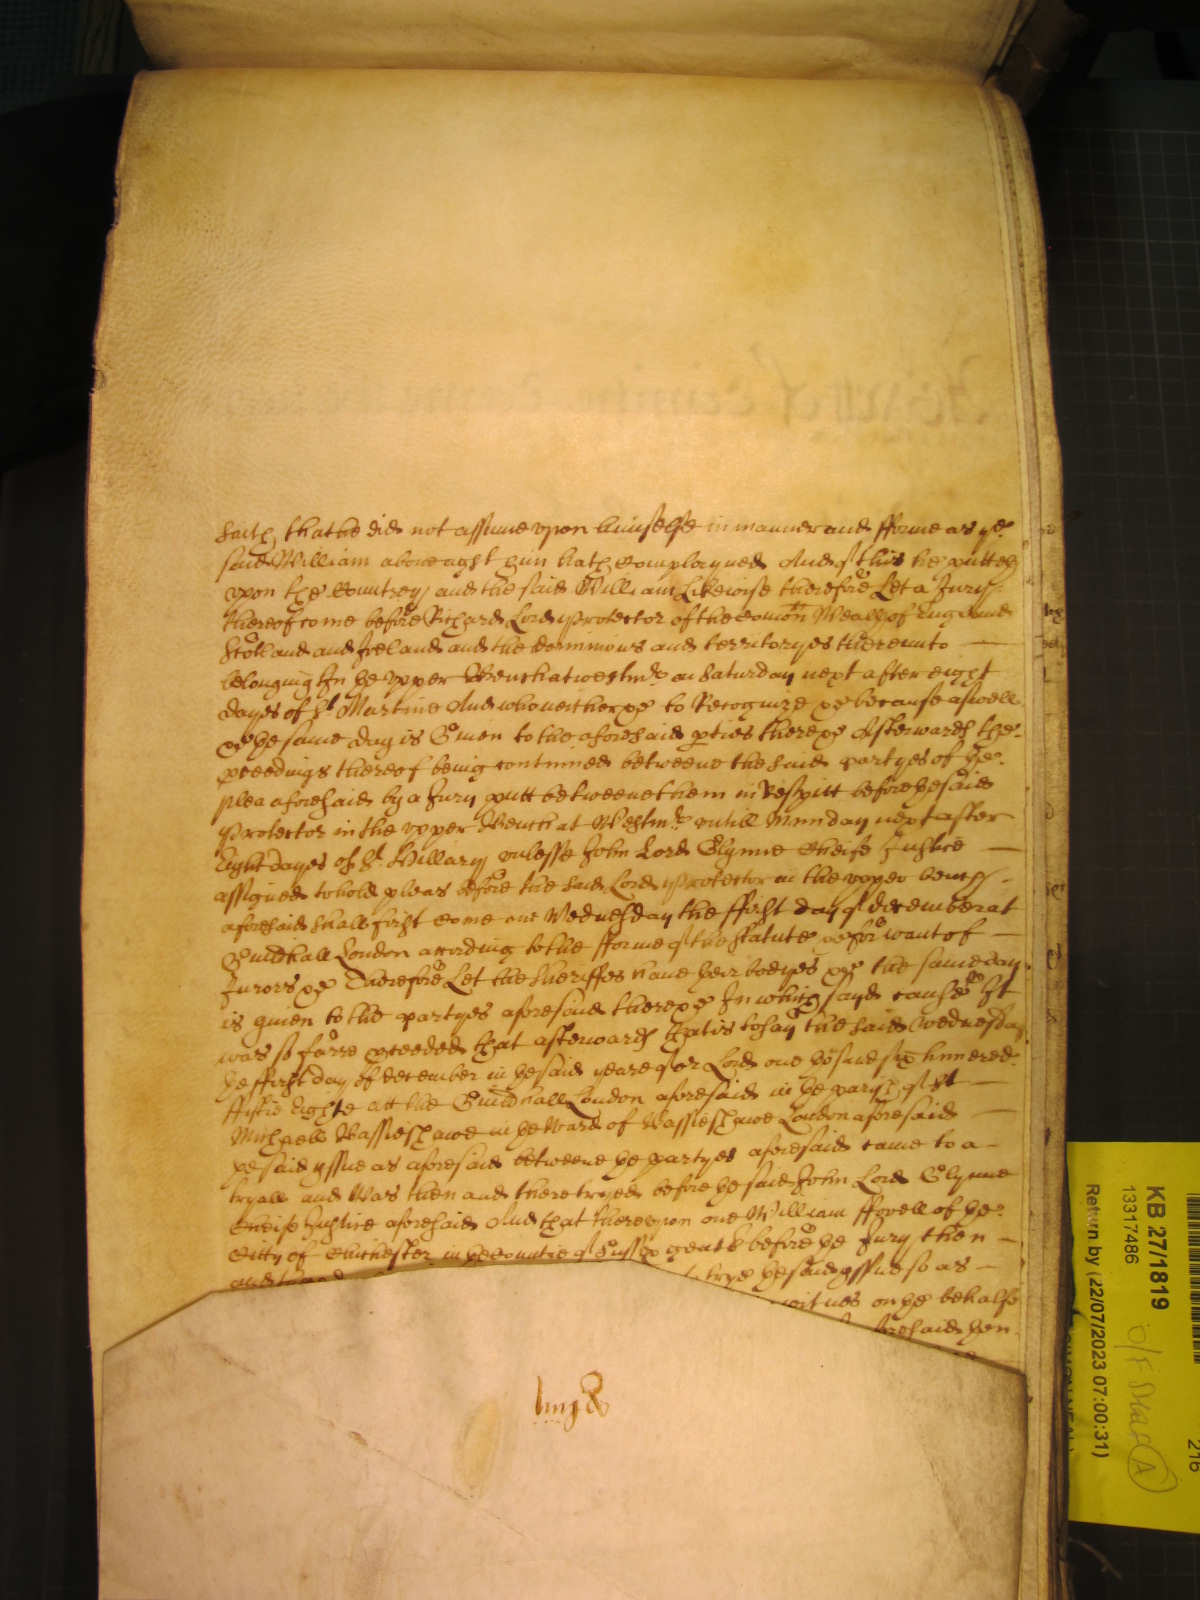 saith that he did not assume vpon himselfe in manner and fforme as ye
said William above agst him hath complayned And of this he putteth
vpon the Countrey and the said William Likewise therefore Let a Jury
thereof come before Richard Lord Protector of the Comon Wealth of England
Scotland and Ireland and the dominions and territoryes thereunto
belonging In ye vpper Bench at westmr. on Saturday next after eight
dayes of St. Martine And who neither &c to Recognize &c because aswell
&c ye same day is Given to the aforesaid pties there &c Afterwards the
pceedings thereof being continued betweene the said partyes of ye
plea aforesaid by a Jury putt betweene them in Respitt before ye said
Protector in the vpper Bench at Westmr. vntill Munday next after
Eight dayes of St. Hillary vnlesse John Lord Glynne Cheife Justice
assigned to hold pleas before the said Lord Protector in the vpper bench
aforesaid shall first come one Wednesday the ffirst day of december at
Guildhall London according to the fforme of the Statute &c for want of
Jurors &c Therefore Let the Sheriffes have their bodyes &c the same day
is given to the partyes aforesaid there &c In which sayd cause It
was so farre pceeded that afterwards that is to say the said Wednesday
ye ffirst day of december in ye said yeare of or Lord one thousand six hundred
ffiftie Eighte att the Guildhall London aforesaid in ye parish of St
Michaell Bassieshawe in ye Ward of Bassieshawe London aforesaid
ye said yssue as aforesaid betweene ye partyes aforesaid came to a
tryall and Was then and there tryed before ye said John Lord Glynne
Cheife Justice aforesaid And that therevpon one William ffowell of ye
Citty of Chichester in ye Countie of Sussex gent before ye Jury then
and trye ye said yssue so as
witnes on ye behalfe
aforesaid then
KB 27/1819
13317486
Return by (22/07/2023 07:00:31)
O/F Shelf A
216